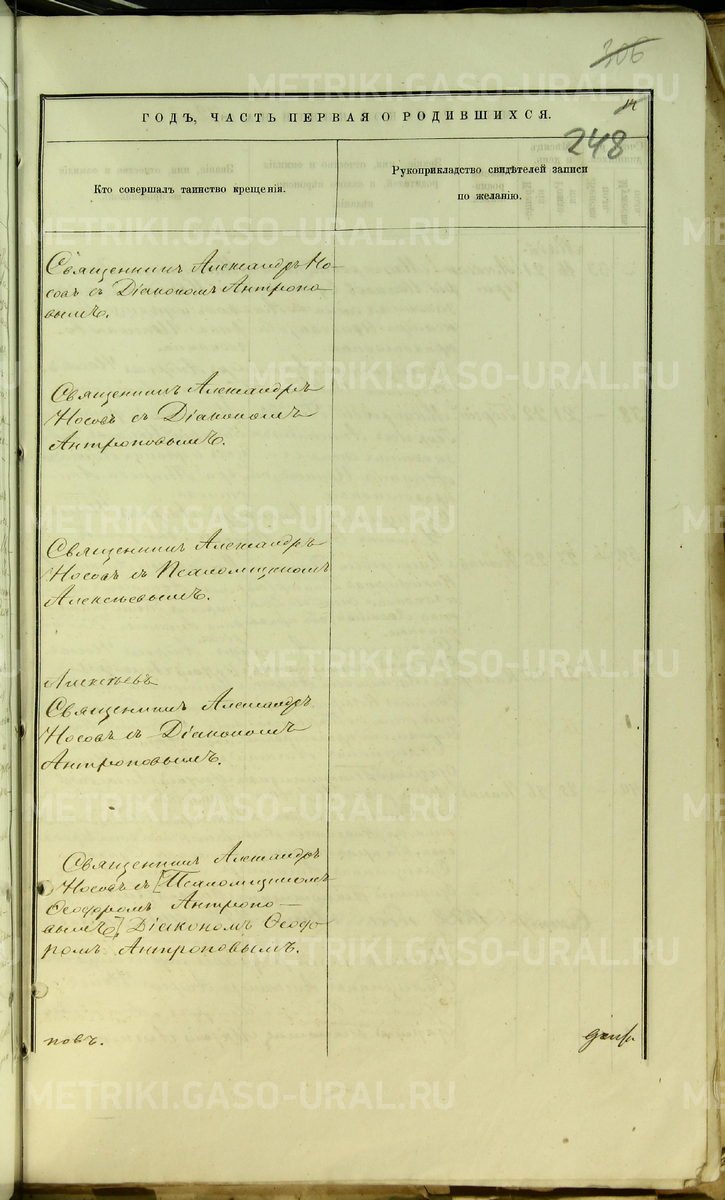 306
14
ГОДЪ, ЧАСТЬ ПЕРВАЯ О РОДИВШИХСЯ.
248
Кто совершалъ таинство крещенія.
Рукоприкладство свидѣтелей записи
по желанію.
Священникъ Александръ Но-
совъ съ Діакономъ Антропо-
вымъ.
Священникъ Александръ
Носовъ съ Діакономъ
Антроповымъ.
Священникъ Александръ
Носовъ съ Псаломщикомъ
Алексѣевымъ.
Алексѣевъ
Священникъ Александръ
Носовъ съ Діакономъ
Антроповымъ.
Священникъ Александръ
Носовъ съ [Псаломщикомъ
Ѳеодоромъ Антропо-
вымъ], Діакономъ Ѳеодо-
ромъ Антроповымъ.
повъ.
METRIKI.GASO-URAL.RU
METRIKI.GASO-URAL.RU
METRIKI.GASO-URAL.RU
METRIKI.GASO-URAL.RU
METRIKI.GASO-URAL.RU
METRIKI.GASO-URAL.RU
METRIKI.GASO-URAL.RU
METRIKI.GASO-URAL.RU